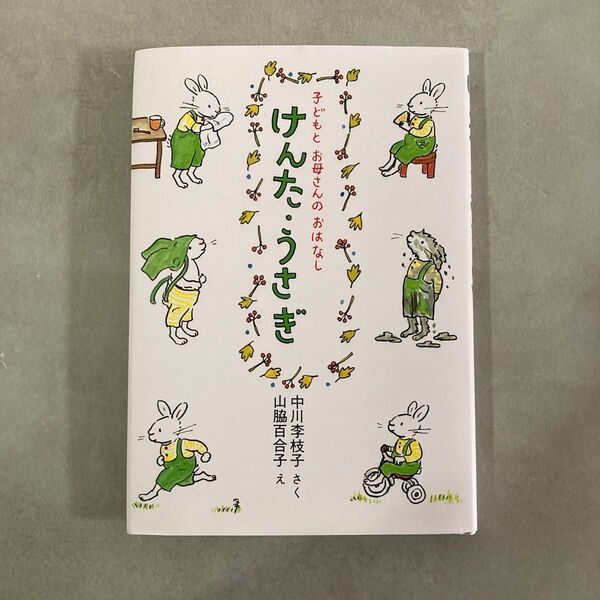 子どもと お母さんの おはなし
けんた・うさぎ
中川李枝子 さく
山脇百合子 え